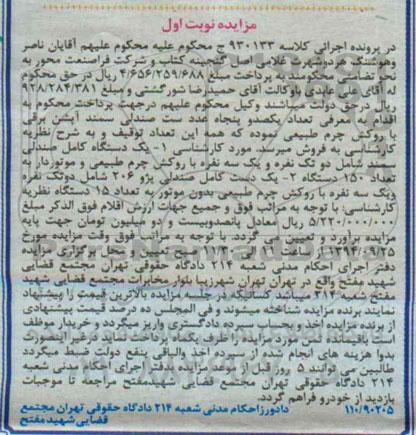 مزایده نوبت اول
در پرونده اجرائی کلاسه ۹۳۰۱۳۳ ج محکوم علیه محکوم علیهم آقایان ناصر
وهوشنگ هردوشهرت غلامی اصل گنجینه کتاب و شرکت فراصنعت محور به
نحو تضامنی محکومند به پرداخت مبلغ ۴/۶۵۶/۲۵۹/۶۸۸ ریال در حق محکوم
له آقای عابدی باوکالت آقای حمیدرضا شورگشتی و مبلغ ۹۲۸/۲۸۴/۳۸۱
ریال درحق دولت میباشند وکیل محکوم علیهم درجهت پرداخت محکوم به
اقدام به معرفی تعداد یکصدو پنجاه عدد ست صندلی سمند آپشن برقی
با روکش چرم طبیعی نموده که همه این تعداد توقیف و به شرح نظریه
کارشناسی به فروش میرسد. مورد کارشناسی ۱- یک دستگاه کامل صندلی
سمند شامل دو تک نفره و یک سه نفره با روکش چرم طبیعی و موتوردار به
تعداد ۱۵۰ دستگاه ۲- یک دست کامل صندلی پژو ۲۰۶ شامل دوتک نفره
ویک سه نفره با روکش چرم طبیعی بدون موتور به تعداد ۱۵ دستگاه نظریه
کارشناسی: با توجه به مراتب فوق و جمیع جهات ارزش اقلام فوق الذکر مبلغ
۵/۲۲۰/۰۰۰/۰۰۰ ریال معادل پانصدوبیست و دو میلیون تومان جهت پایه
مزایده برآورد و تعیین می گردد. با توجه به مراتب فوق وقت مزایده مورخ
۱۳۹۴/۰۹/۲۵ ساعت ۱۱ الی ۱۲ صبح تعیین و محل برگزاری مزایده
دفتر اجرای احکام مدنی شعبه ۲۱۴ دادگاه حقوقی تهران مجتمع قضایی شهید
مفتح واقع در تهران تهران شهرزیبا بلوار مخابرات مجتمع قضایی شهید
مفتح شعبه ۲۱۴ میباشد کسانیکه در جلسه مزایده بالاترین قیمت را پیشنهاد
نمایند برنده مزایده شناخته میشوند و فی المجلس ده درصد قیمت پیشنهادی
از برنده مزایده اخذ و بحساب سپرده دادگستری واریز میگردد و خریدار موظف
است باقیمانده ثمن مورد مزایده را ظرف یکماه پرداخت نماید درغیر اینصورت
بدوا هزینه های انجام شده از سپرده اخذ والباقی بنفع دولت ضبط میگردد
طالبین می توانند ۵ روز قبل از موعد مزایده بدفتر اجرای احکام مدنی شعبه
۲۱۴ دادگاه حقوقی تهران مجتمع قضایی شهیدمفتح مراجعه تا موجبات
بازدید از خودرو فراهم گردد.
۱۱۰/۹۰۲۰۵ دادورز احکام مدنی شعبه ۲۱۴ دادگاه حقوقی تهران مجتمع
قضایی شهید مفتح